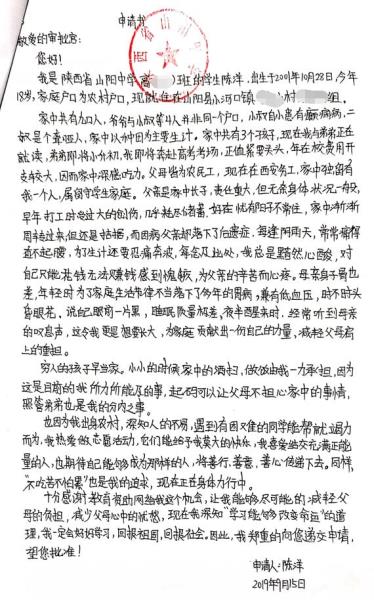 申请书
敬爱的审批官:
您好!
我是陕西省山阳中学高 )班的学生陈洋,出生于2001年10月28日,今年
18岁,家庭户口为农村户口,现就住在山阳县小河口镇 村 组。
家中共有九口人,爷爷与小叔等4人并非同一户口,小叔自小患有癫痫病,二
叔是个聋哑人,家中以种田为主要生计。家中共有3个孩子,现在我与弟弟正在
就读,弟弟即将小升初,我即将奔赴高考考场,正值紧要关头,每年在校费用开
支较大,因而家中深感吃力。父母皆为农民工,现在在西安务工,家中独留有
我一个人,属留守学生家庭。父亲是家中长子,责任重大,但无奈身体状况一般,
早年打工时受过大的创伤,几乎耗尽储蓄,好在忧有好不常住,家中渐渐
周转过来,但还是拮据,而因病父亲却落下了后遗症,每逢阴雨天,常常痛得
直不起腰,为了生计还要忍痛奔波,每念及此处,我总是黯然心酸,对
自己只能花钱无法赚钱感到愧疚,为父亲的辛苦而心疼。母亲身子弱也
差,年轻时为了家庭生活节律不当落下了多年的胃病,兼有低血压,时不时头
昏眼花,说起眼前一片黑,睡眠质量极差,夜半醒来时,经常听到母亲
的叹息声,这令我更是想要长大,为家庭贡献出一份自己的力量,减轻父母肩
上的重担。
穷人的孩子早当家。小小的时候家中的洒扫,做饭便由我一力承担,因为
这是目前的我所力所能及的事,起码可以让父母不担心家中的事情,
照管弟弟也是我的分内之事。
也因为我出身农村,深知人的不易,遇到有困难的同学能帮就竭力
而为,我热爱做志愿活动,它们能给予我莫大的快乐,我喜爱结交充满正能
量的人,也期待自己能够成为那样的人,将善行、善意、善心传递下去。同样,
“不吃苦不怕累”也是我的追求,现在正在身体力行中。
十分感谢教育资助网给我这个机会,让我能够尽可能的减轻父
母的负担,减少父母心中的忧愁,现在我深知“学习能够改变命运”的道
理,我一定会好好学习,回报祖国,回报社会。因此,我郑重的向您递交申请,
望您批准!
申请人:陈洋
2019年1月15日